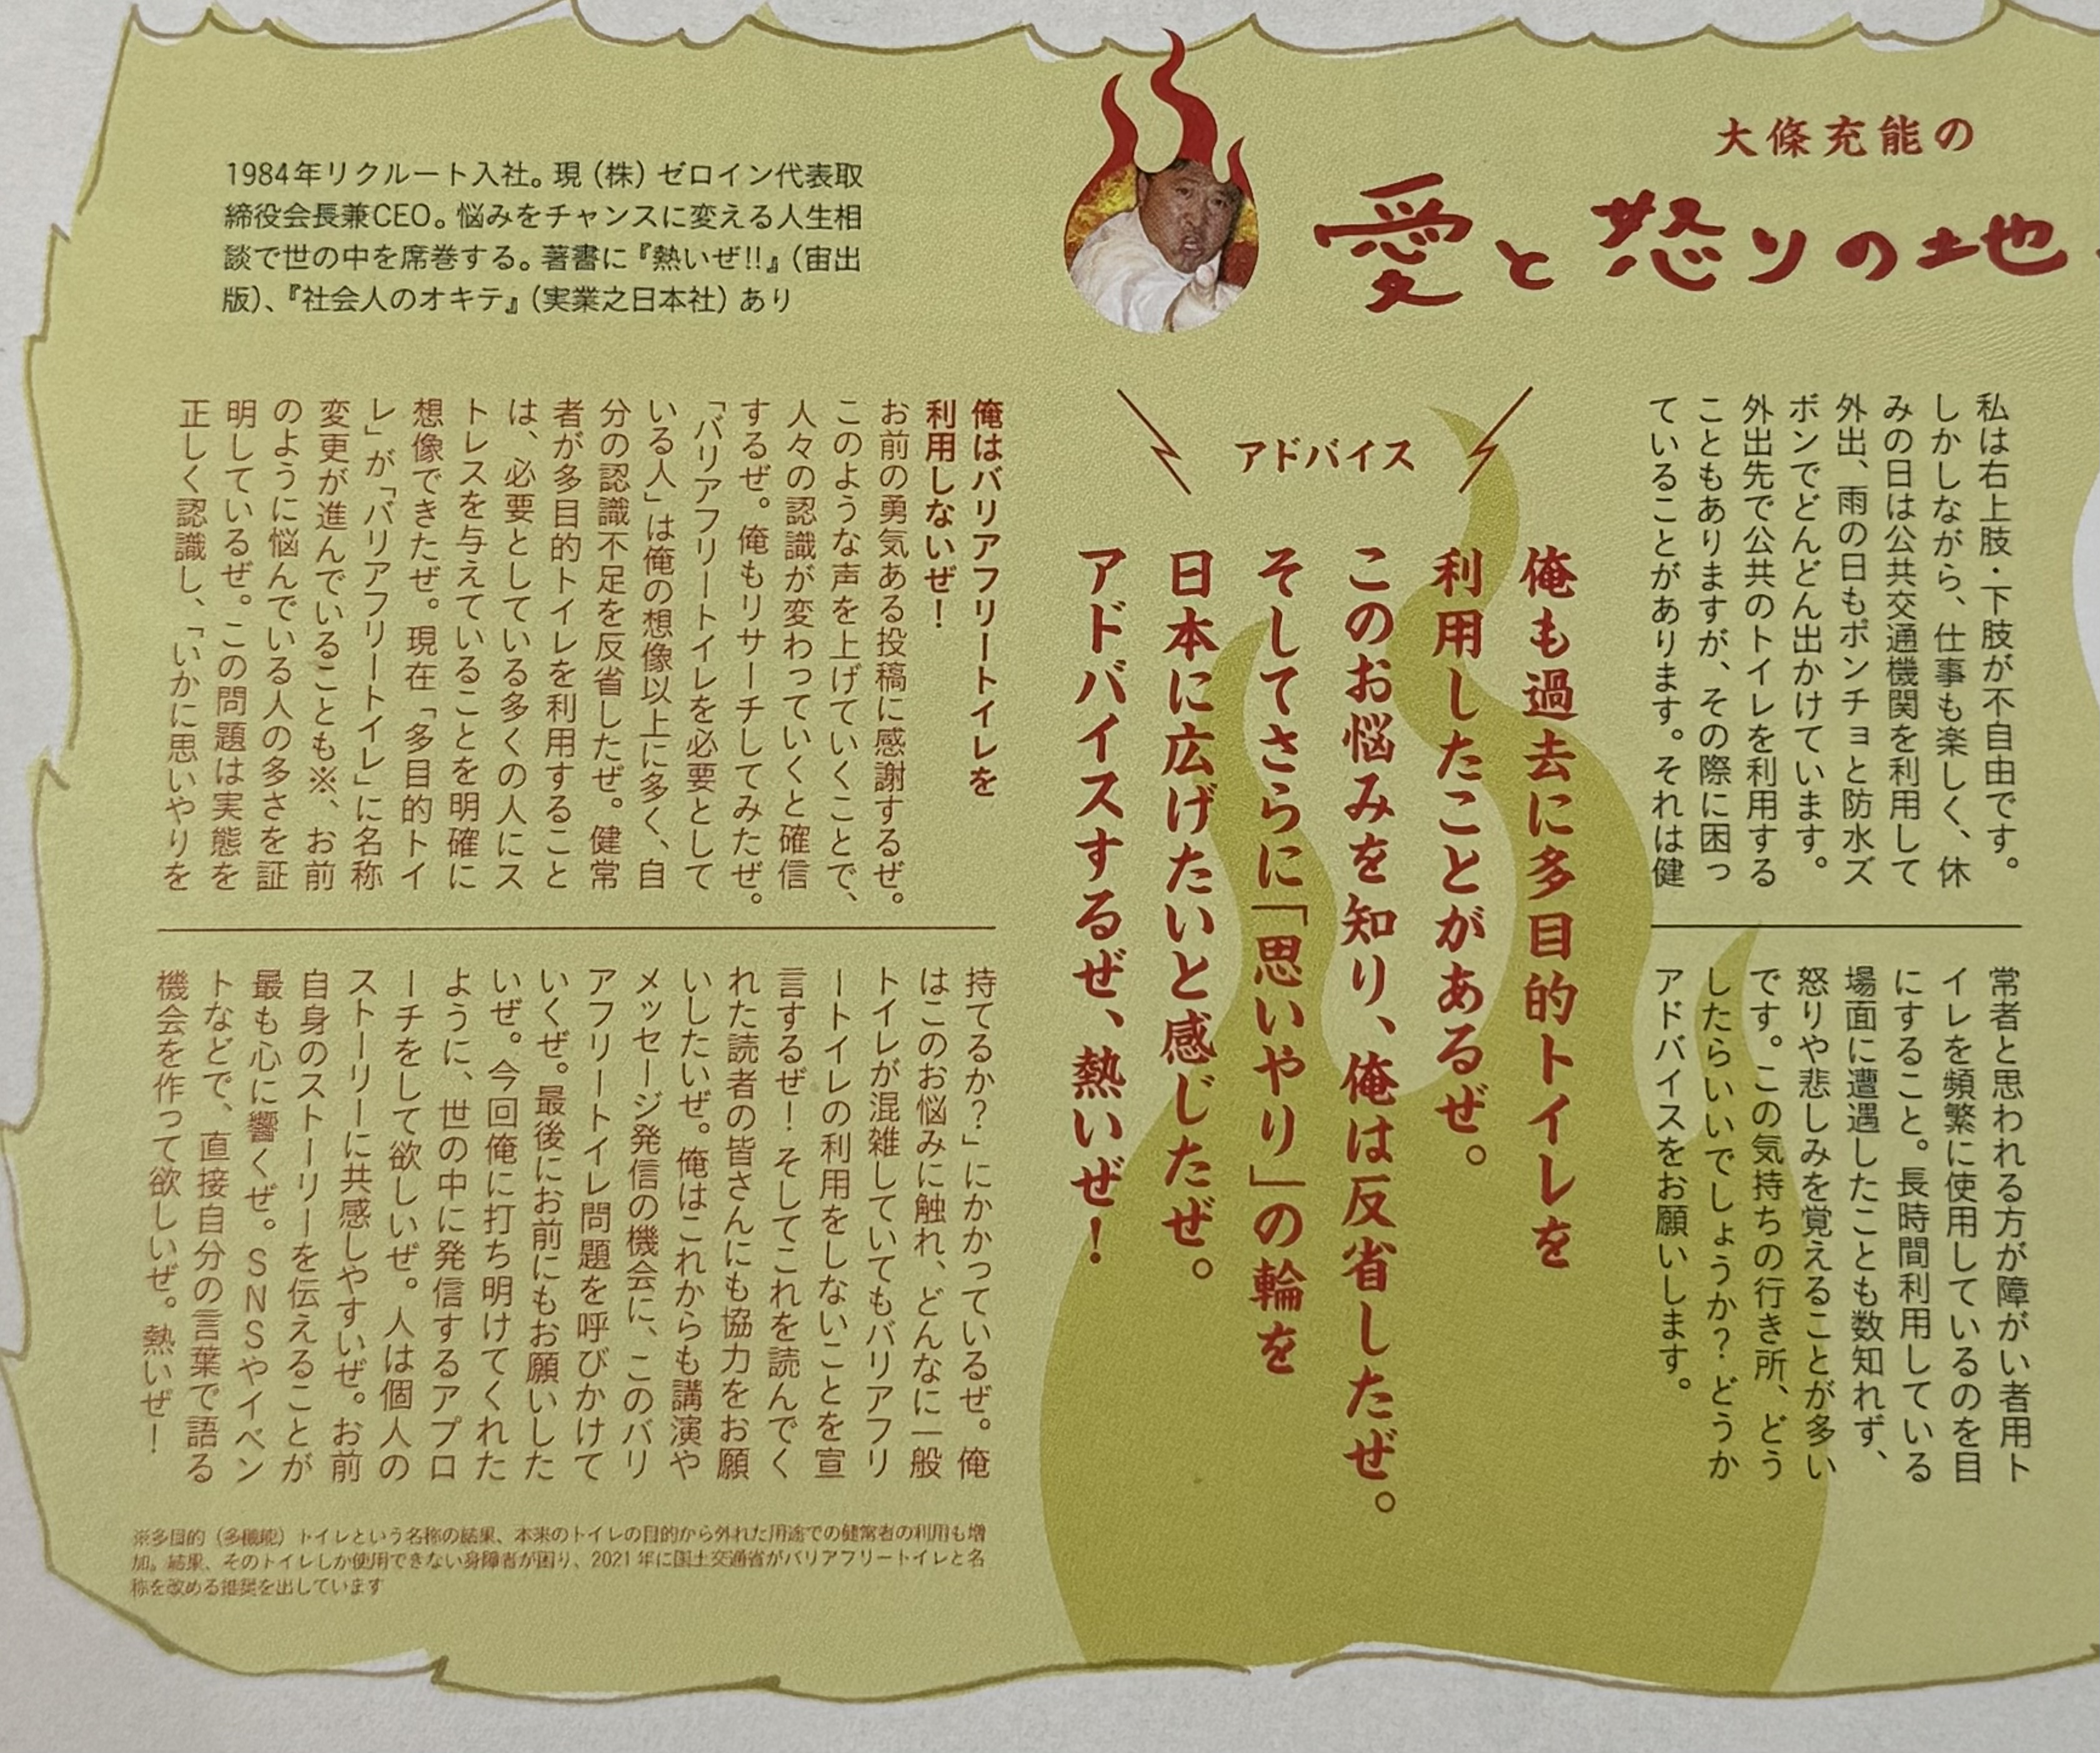 大條充能の
愛と怒りの地
1984年リクルート入社。現（株）ゼロイン代表取
締役会長兼CEO。悩みをチャンスに変える人生相
談で世の中を席巻する。著書に『熱いぜ!!』（宙出
版）、『社会人のオキテ』（実業之日本社）あり
私は右上肢・下肢が不自由です。
しかしながら、仕事も楽しく、休
みの日は公共交通機関を利用して
外出、雨の日もポンチョと防水ズ
ボンでどんどん出かけています。
外出先で公共のトイレを利用する
こともありますが、その際に困っ
ていることがあります。それは健
常者と思われる方が障がい者用ト
イレを頻繁に使用しているのを目
にすること。長時間利用している
場面に遭遇したことも数知れず、
怒りや悲しみを覚えることが多い
です。この気持ちの行き所、どう
したらいいでしょうか？どうか
アドバイスをお願いします。
アドバイス
俺も過去に多目的トイレを
利用したことがあるぜ。
このお悩みを知り、俺は反省したぜ。
そしてさらに「思いやり」の輪を
日本に広げたいと感じたぜ。
アドバイスするぜ、熱いぜ！
俺はバリアフリートイレを
利用しないぜ！
お前の勇気ある投稿に感謝するぜ。
このような声を上げていくことで、
人々の認識が変わっていくと確信
するぜ。俺もリサーチしてみたぜ。
「バリアフリートイレを必要として
いる人」は俺の想像以上に多く、自
分の認識不足を反省したぜ。健常
者が多目的トイレを利用すること
は、必要としている多くの人にス
トレスを与えていることを明確に
想像できたぜ。現在「多目的トイ
レ」が「バリアフリートイレ」に名称
変更が進んでいることも※、お前
のように悩んでいる人の多さを証
明しているぜ。この問題は実態を
正しく認識し、「いかに思いやりを
持てるか？」にかかっているぜ。俺
はこのお悩みに触れ、どんなに一般
トイレが混雑していてもバリアフリ
ートイレの利用をしないことを宣
言するぜ！そしてこれを読んでく
れた読者の皆さんにも協力をお願
いしたいぜ。俺はこれからも講演や
メッセージ発信の機会に、このバリ
アフリートイレ問題を呼びかけて
いくぜ。最後にお前にもお願いした
いぜ。今回俺に打ち明けてくれた
ように、世の中に発信するアプロ
ーチをして欲しいぜ。人は個人の
ストーリーに共感しやすいぜ。お前
自身のストーリーを伝えることが
最も心に響くぜ。SNSやイベン
トなどで、直接自分の言葉で語る
機会を作って欲しいぜ。熱いぜ！
※多目的（多機能）トイレという名称の結果、本来のトイレの目的から外れた用途での健常者の利用も増
加。結果、そのトイレしか使用できない身障者が困り、2021年に国土交通省がバリアフリートイレと名
称を改める推奨を出しています